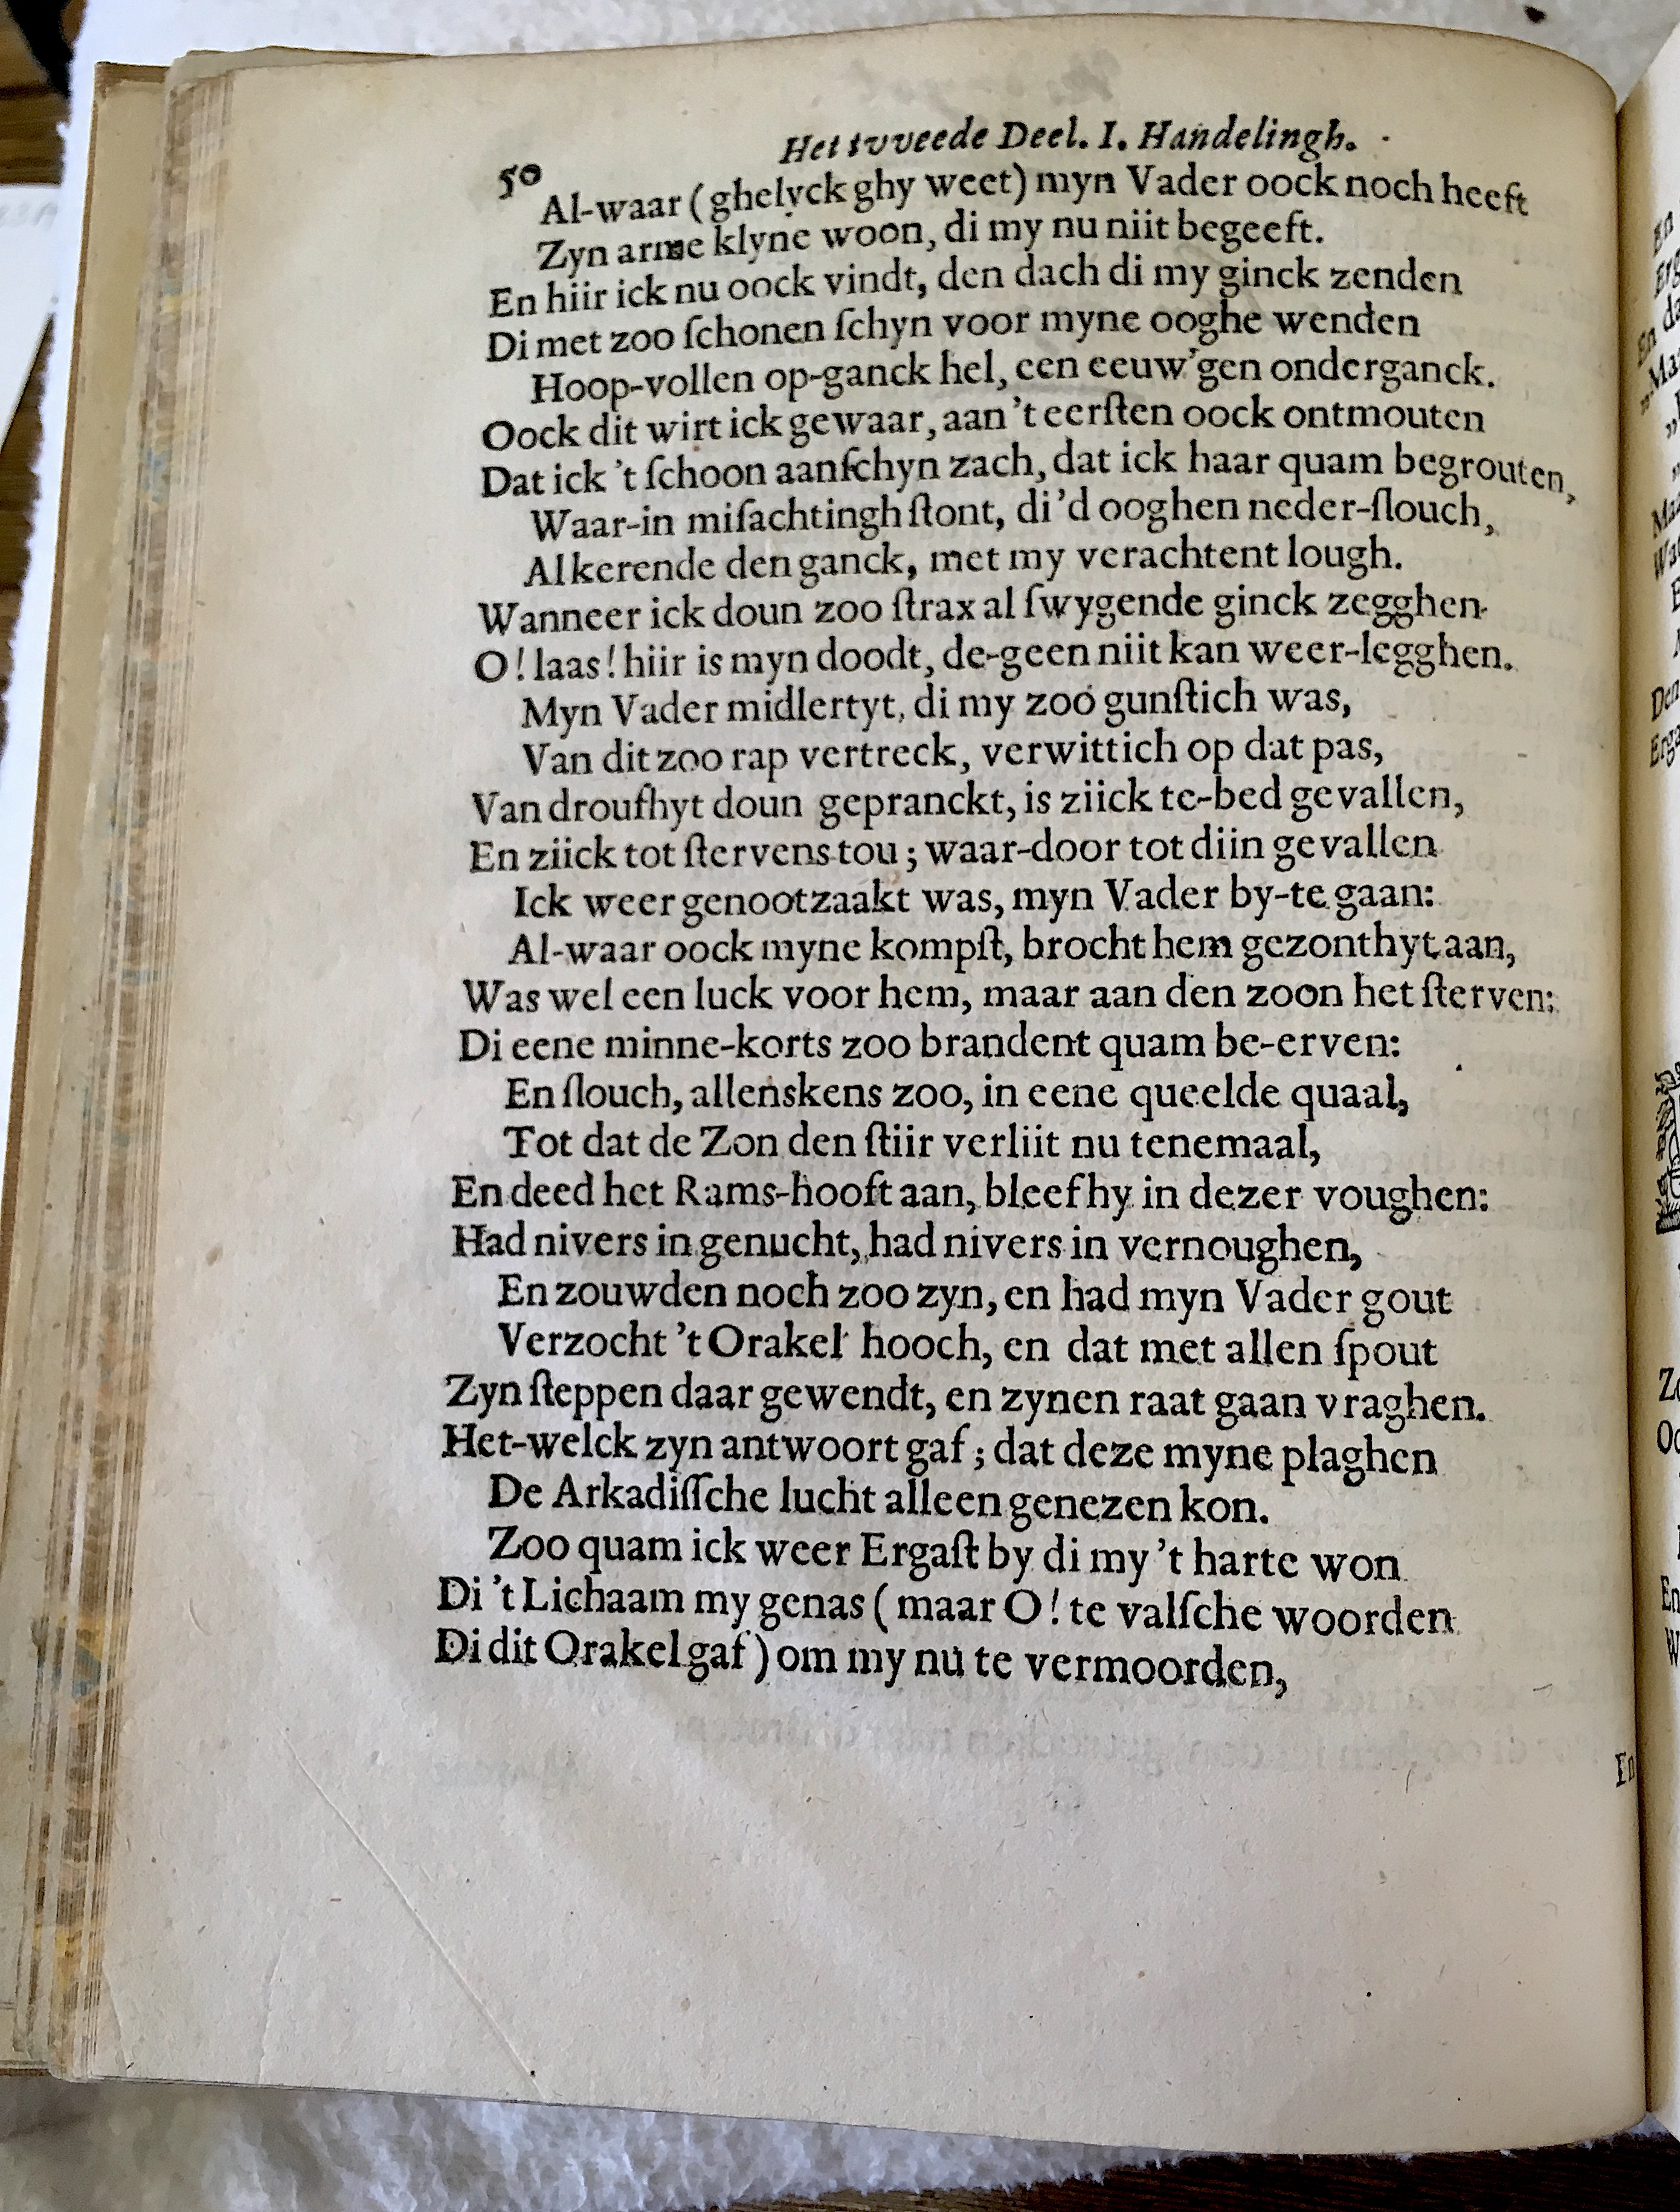 Het tvveede Deel. I. Handelingh.
50
Al-waar (ghelyck ghy weet) myn Vader oock noch heeft
Zyn arme klyne woon, di my nu niit begeeft.
En hiir ick nu oock vindt, den dach di my ginck zenden
Di met zoo ſchonen ſchyn voor myne ooghe wenden
Hoop-vollen op-ganck hel, een eeuw'gen onderganck.
Oock dit wirt ick gewaar, aan 't eerſten oock ontmouten
Dat ick 't ſchoon aanſchyn zach, dat ick haar quam begrouten,
Waar-in miſachtingh ſtont, di 'd ooghen neder-ſlouch,
Al kerende den ganck, met my verachtent lough.
Wanneer ick doun zoo ſtrax al ſwygende ginck zegghen
O! laas! hiir is myn doodt, de-geen niit kan weer-legghen.
Myn Vader midlertyt, di my zoo gunſtich was,
Van dit zoo rap vertreck, verwittich op dat pas,
Van droufhyt doun gepranckt, is ziick te-bed gevallen,
En ziick tot ſtervens tou; waar-door tot diin gevallen
Ick weer genootzaakt was, myn Vader by-te gaan:
Al-waar oock myne kompſt, brocht hem gezonthyt aan,
Was wel een luck voor hem, maar aan den zoon het ſterven:
Di eene minne-korts zoo brandent quam be-erven:
En ſlouch, allenskens zoo, in eene queelde quaal,
Tot dat de Zon den ſtiir verliit nu tenemaal,
En deed het Rams-hooft aan, bleef hy in dezer voughen:
Had nivers in genucht, had nivers in vernoughen,
En zouwden noch zoo zyn, en had myn Vader gout
Verzocht 't Orakel hooch, en dat met allen ſpout
Zyn ſteppen daar gewendt, en zynen raat gaan vraghen.
Het-welck zyn antwoort gaf; dat deze myne plaghen
De Arkadiſſche lucht alleen genezen kon.
Zoo quam ick weer Ergaſt by di my 't harte won
Di 't Lichaam my genas (maar O! te valſche woorden
Di dit Orakel gaf) om my nu te vermoorden,
En